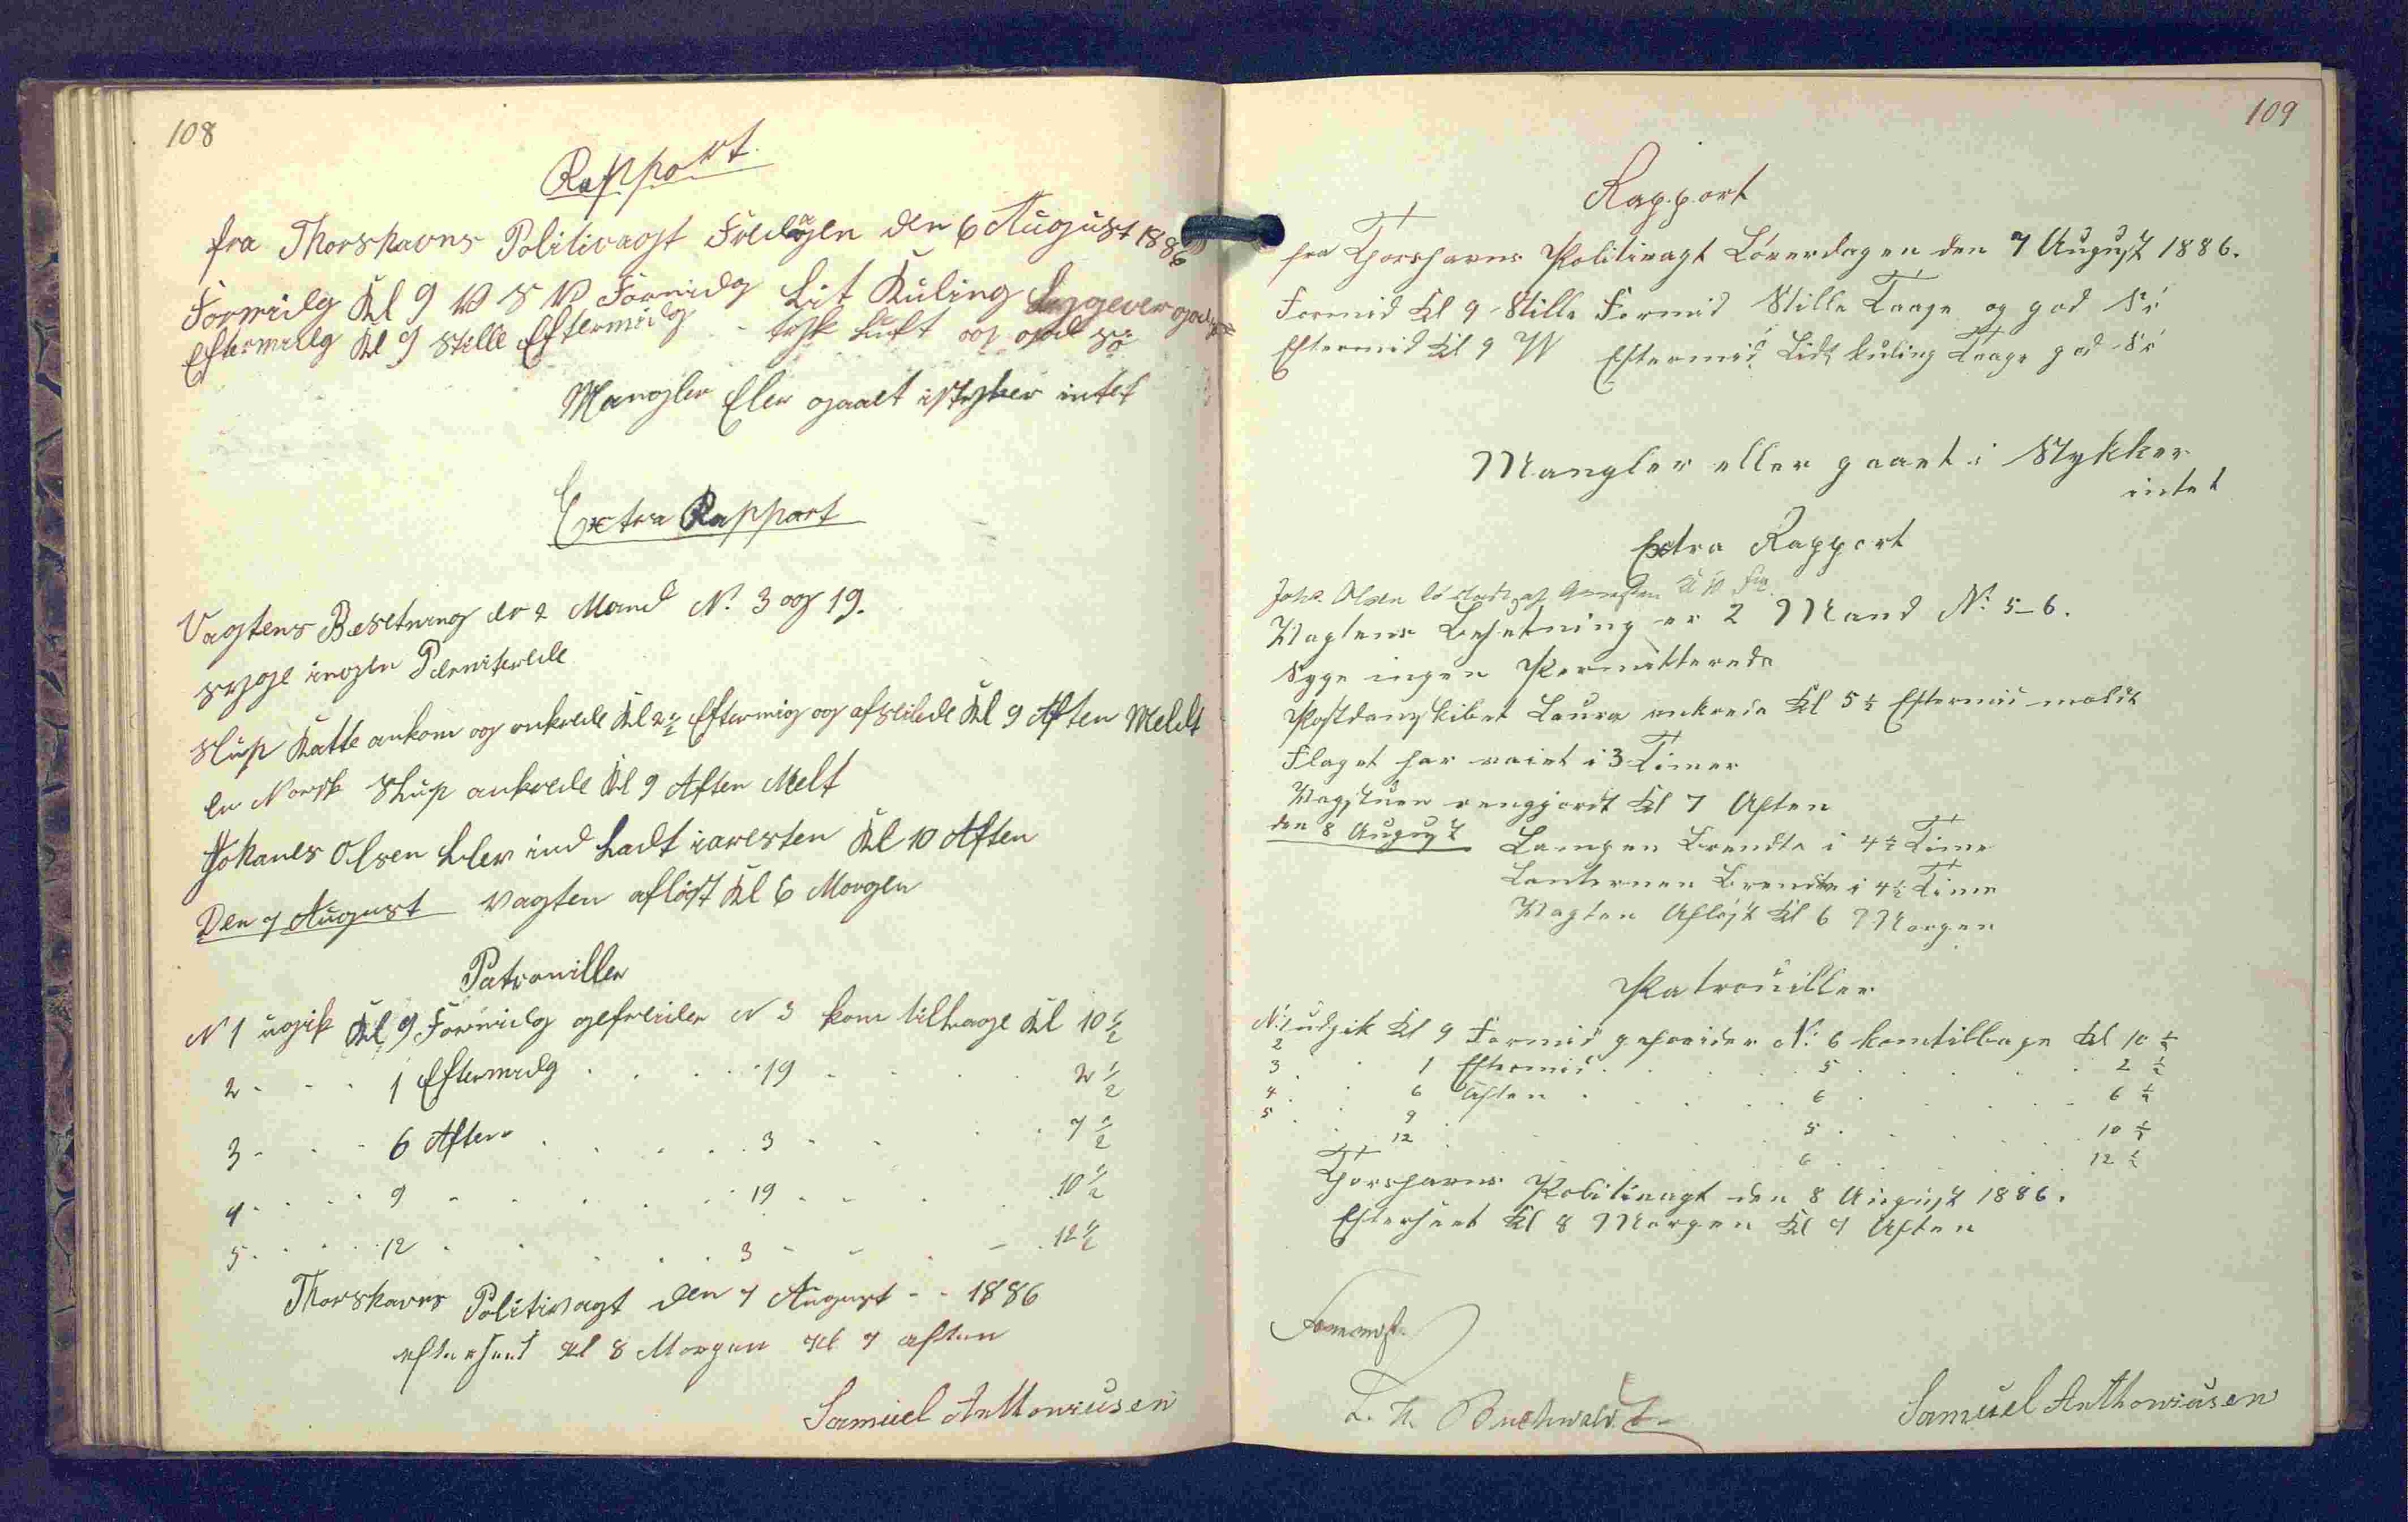 108
Rapport.
fra Thorshavns Politivagt Fredagen den 6 August 1886
Formidg Kl 9 V S V Formidg Lit Kuling Regnever god
Eftermidg Kl 9 Stille Eftermidg - tyk Luft og god Sö
Mangler Eler gaaet istyker intet
Extra Rapport
Vagtens Besetning er 2 Mand N. 3 og 19.
syge ingen Permiterede
Slup Katte ankom og ankrede Kl 2½ Eftermig og afseilede Kl 9 Aften Meldt
en Norsk Slup ankrede Kl 9 Aften Melt
Johanes Olsen blev ind Ladt iaresten Kl 10 Aften
Den 7 August Vagten aflöst Kl 6 Morgen
Patrouiller
N 1 ugik Kl 9 Formidg gefreider N 3 kom tilbage Kl 10 ½
2 - - - 1 Eftermidg . . . . 19 - . . . 2 ½
3 - - - 6 Aften . . . . 3 - - . . 7 ½
4 - . . . 9 - - . . . . 19 - - . . 10 ½
5 . . . . 12 - . . . . . 3 - - . - . 12 ½
Thorshavns Politivagt den 7 August - - 1886
efterseet Kl 8 Morgen Kl 7 aften
Samuel Anthoniusen
109
Rapport
fra Thorshavns Politivagt Löverdagen den 7 August 1886.
Formid Kl 9 Stille Formid Stille Taage og god Sö
Eftermid Kl 9 W Eftermid Lidt kuling Taage god Sö
Mangler eller gaaet i Stykker
intet
Extra Rapport
Joh. Olsen lösladt af Arresten Kl 10 Fm.
Vagtens Besetning er 2 Mand N: 5-6.
Syge ingen Permitterede
Postdampskibet Laura ankrede Kl 5½ Eftermid meldt
Flaget har vaiet i 3 Timer
Vagstuen rengjordt Kl 7 Aften
den 8 August Lampen Brendte i 4½ Time
Lanternen Brendte i 4½ Time
Vagten Aflöst Kl 6 Morgen
Patrouiller
N: 1 udgik Kl 9 Formid gefreider N: 6 kom tilbage Kl 10 ½
2 . . 1 Eftermid . . . 5 . . . . 2 ½
3 . . 6 Aften . . . . 6 . . . . 6 ½
4 . . 9 . . . . . 5 . . . . 10 ½
5 . . 12 . . . . . 6 . . . . 12 ½
Thorshavns Politivagt den 8 August 1886.
Efterseet Kl 8 Morgen Kl 7 Aften
Buchwaldt
Samuel Anthoniusen